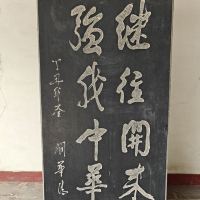 继往開来
强我中華
丁丑年冬